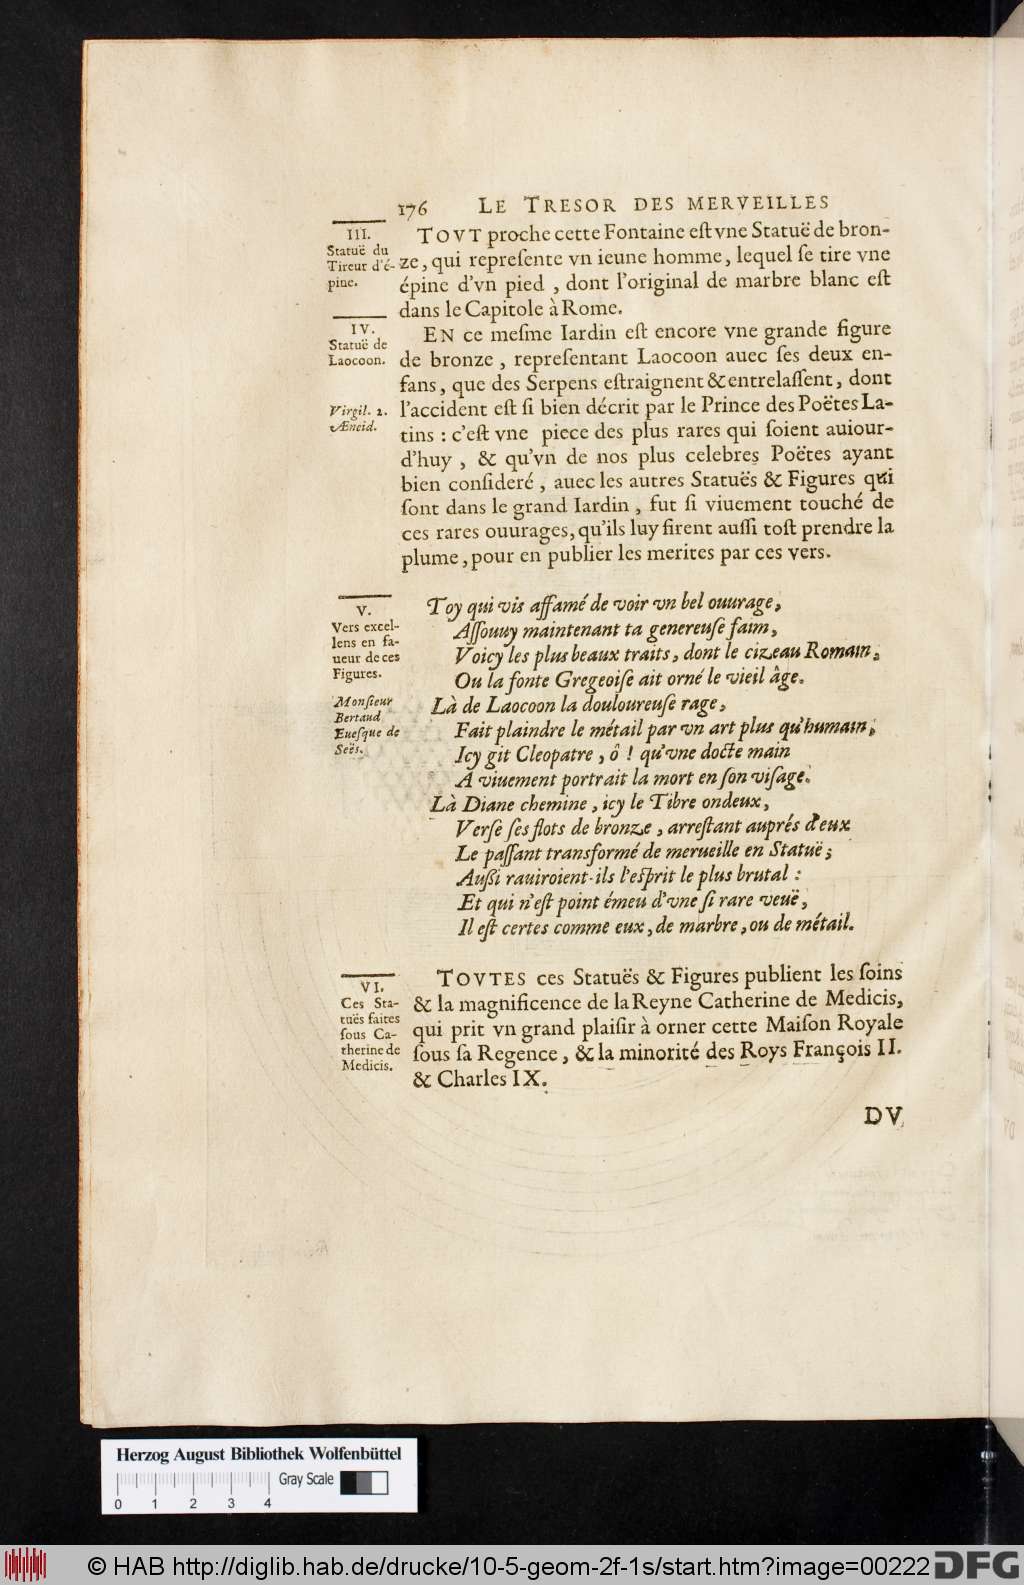 176 LE TRESOR DES MERVEILLES
III.
Statuë du
Tireur d'é-
pine.
TOVT proche cette Fontaine eſt vne Statuë de bron-
ze, qui repreſente vn ieune homme, lequel ſe tire vne
épine d'vn pied, dont l'original de marbre blanc eſt
dans le Capitole à Rome.
IV.
Statuë de
Laocoon.
Virgil. 2.
Æneid.
EN ce meſme Iardin eſt encore vne grande figure
de bronze, repreſentant Laocoon auec ſes deux en-
fans, que des Serpens eſtraignent & entrelaſſent, dont
l'accident eſt ſi bien décrit par le Prince des Poëtes La-
tins : c'eſt vne piece des plus rares qui ſoient auiour-
d'huy, & qu'vn de nos plus celebres Poëtes ayant
bien conſideré, auec les autres Statuës & Figures qui
ſont dans le grand Iardin, fut ſi viuement touché de
ces rares ouurages, qu'ils luy firent auſſi toſt prendre la
plume, pour en publier les merites par ces vers.
V.
Vers excel-
lens en fa-
ueur de ces
Figures.
Monſieur
Bertaud
Eueſque de
Seës.
Toy qui vis affamé de voir vn bel ouurage,
Aſſouuy maintenant ta genereuſe faim,
Voicy les plus beaux traits, dont le cizeau Romain,
Ou la fonte Gregeoiſe ait orné le vieil âge.
Là de Laocoon la douloureuſe rage,
Fait plaindre le métail par vn art plus qu'humain;
Icy git Cleopatre, ô ! qu'vne docte main
A viuement portrait la mort en ſon viſage.
Là Diane chemine, icy le Tibre ondeux,
Verſe ſes flots de bronze, arreſtant auprés d'eux
Le paſſant transformé de merueille en Statuë;
Auſſi rauiroient-ils l'eſprit le plus brutal :
Et qui n'eſt point émeu d'vne ſi rare veuë,
Il eſt certes comme eux, de marbre, ou de métail.
VI.
Ces Sta-
tuës faites
ſous Ca-
therine de
Medicis.
TOVTES ces Statuës & Figures publient les ſoins
& la magnificence de la Reyne Catherine de Medicis,
qui prit vn grand plaiſir à orner cette Maiſon Royale
ſous ſa Regence, & la minorité des Roys François II.
& Charles IX.
DV
Herzog August Bibliothek Wolfenbüttel
Gray Scale
0 1 2 3 4
© HAB http://diglib.hab.de/drucke/10-5-geom-2f-1s/start.htm?image=00222 DFG